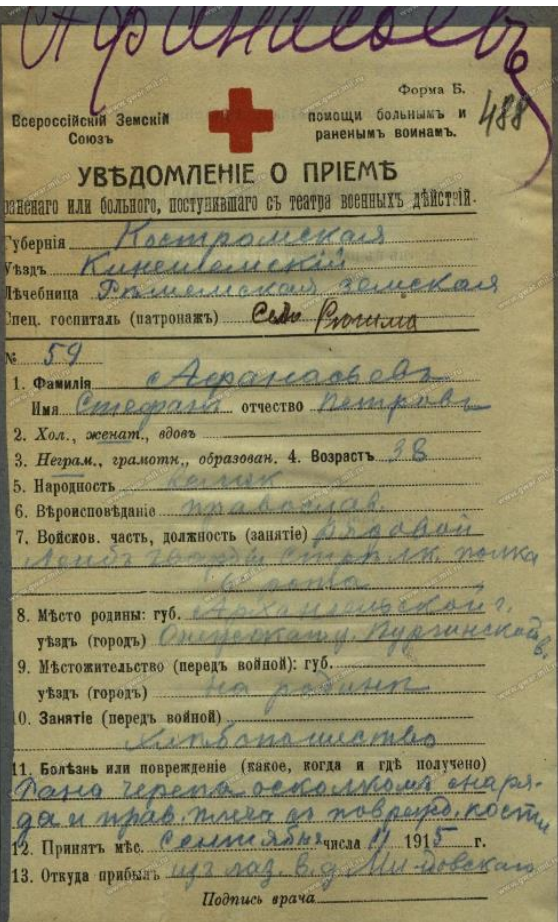 Афанасьевъ
Форма Б.
488
Всероссійскій Земскій
Союзъ
помощи больнымъ и
раненымъ воинамъ.
УВѢДОМЛЕНІЕ О ПРІЕМѢ
раненаго или больного, поступившаго съ театра военныхъ дѣйствій.
Губернія Костромская
Уѣздъ Кинешемскій
Лѣчебница Рѣшемская земская
Спец. госпиталь (патронажъ) Село Рѣшма
№ 59
1. Фамилія Афанасьевъ
Имя Стефанъ отчество Петровъ
2. Хол., женат., вдовъ
3. Неграм., грамотн., образован. 4. Возрастъ 38
5. Народность
6. Вѣроисповѣданіе православ.
7. Войсков. часть, должность (занятіе) рядовой
Лейбъ Гвардіи Стрѣлк. полка
6 рота
8. Мѣсто родины: губ. Архангельской г.
уѣздъ (городъ) Онежскаго у.
9. Мѣстожительство (передъ войной): губ.
уѣздъ (городъ) на родинѣ
10. Занятіе (передъ войной)
Хлѣбопашество
11. Болѣзнь или поврежденіе (какое, когда и гдѣ получено)
Рана черепа осколкомъ снаря-
да и прав. плеча съ поврежд. кости
12. Принятъ мѣс. Сентября числа 11 1915 г.
13. Откуда прибылъ изъ лаз. в. д.
Подпись врача
www.gwar.mil.ru